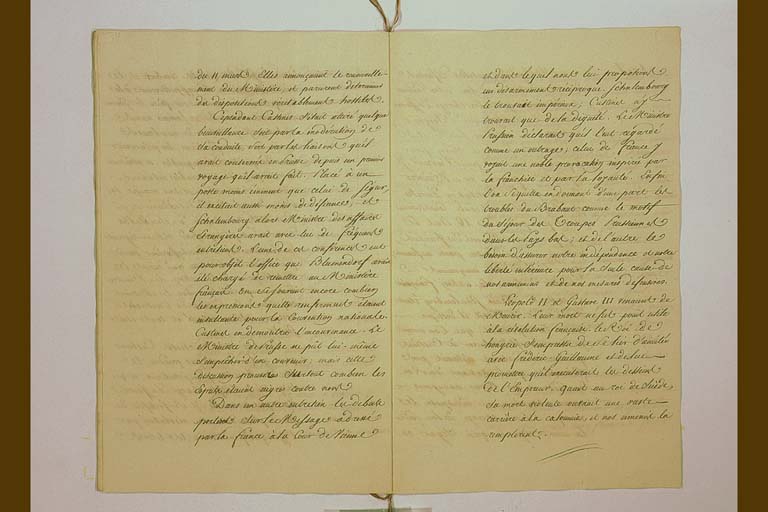 du 11 mars. Elles annonçaient le renouvelle-
ment du Ministère, et parurent déterminer
des dispositions véritablement hostiles.
Cependant Custine s'était attiré quelque
bienveillance soit par la modération de
sa conduite soit par les liaisons qu'il
avait conservé en Prusse depuis un premier
voyage qu'il avait fait. Placé à un
poste moins éminent que celui de Ségur,
il excitait aussi moins de défiance; et
Schulembourg alors Ministre des affaires
Etrangères avait avec lui de fréquens
entretiens. L'une de ces conférences eut
pour objet l'office que Blumendorf avait
été chargé de remettre au Ministère
français. On se souvient encore combien
les expressions qu'elle renfermait étaient
insultantes pour la Convention nationale.
Custine en démontra l'inconvenance. Le
Ministre de Prusse ne pût lui-même
s'empêcher d'en convenir; mais cette
discussion prouva surtout combien les
Esprits étaient aigris contre nous.
Dans un autre entretien le débat
sur le Message adressé
par la france à la Cour de Vienne
et dans lequel nous lui proposions
un désarmement réciproque. Schulembourg
le trouvait impérieux; Custine n'y
trouvait que de la dignité. Le Ministre
Prussien déclarait qu'il l'eut regardé
comme un outrage; celui de france y
voyait une noble provocation inspirée par
la franchise et par la loyauté. Enfin
l'on s'équitta en donnant d'une part les
troubles du Brabant comme le motif
du séjour des Troupes Prussiennes
dans les Pays bas; et de l'autre le
besoin d'assurer notre indépendance et notre
liberté intérieure pour la seule cause de
nos armemens et de nos mesures défensives.
Léopold II et Gustave III venaient de
Mourir. Leur mort ne fut point utile
à la révolution française. Le Roi de
hongrie s'empressa de se lier d'amitié
avec frédéric Guillaume et de lui
promettre qu'il exécuterait les desseins
de l'Empereur. Quant au roi de Suède
sa mort violente ouvrait une vaste
carrière à la calomnie, et nos ennemis la
remplirent.